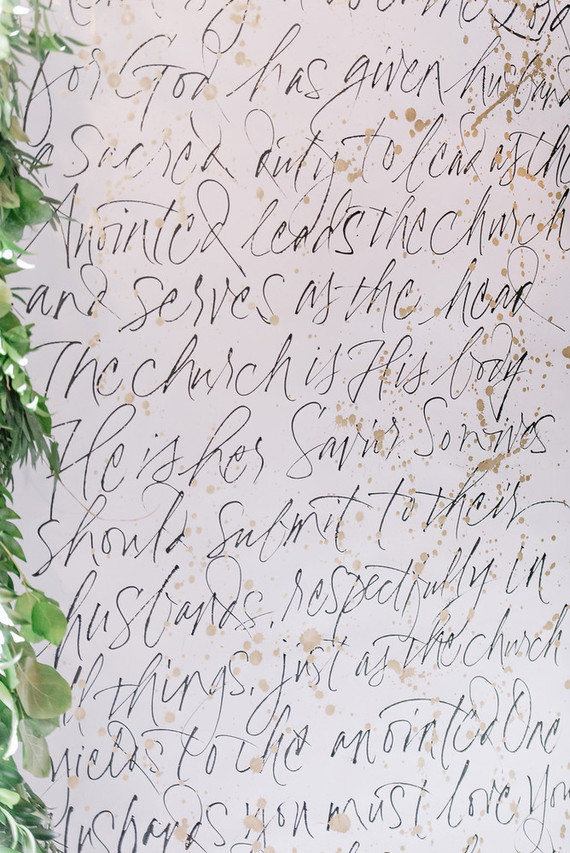 for God has given husbands
a sacred duty to lead as the
Anointed leads the church
and serves as the head
The church is His body
He is her Savior. So wives
should submit to their
husbands, respectfully, in
all things, just as the church
yields to the anointed One
Husbands you must love you